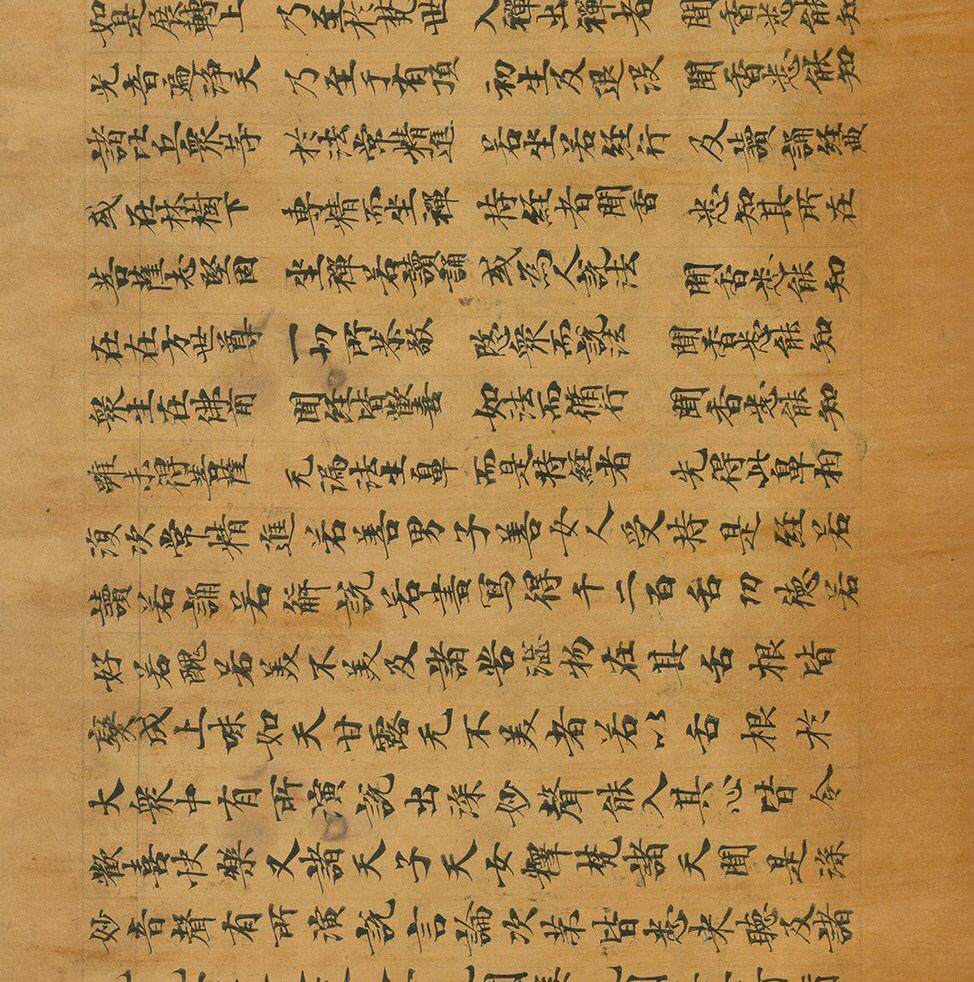 如是展轉上 乃至於梵世 入禪出禪者 聞香悉能知
光音遍淨天 乃至于有頂 初生及退没 聞香悉能知
諸比丘衆等 於法常精進 若坐若經行 及讀誦經典
或在林樹下 專精而坐禪 持經者聞香 悉知其所在
菩薩志堅固 坐禪若讀誦 或為人說法 聞香悉能知
在在方世尊 一切所恭敬 愍衆而說法 聞香悉能知
衆生在佛前 聞經皆歡喜 如法而脩行 聞香悉能知
雖未得菩薩 无漏法生鼻 而是持經者 先得此鼻相
復次常精進若善男子善女人受持是經若
讀若誦若解說若書寫得千二百舌功德若
好若醜若美不美及諸苦澁物在其舌根皆
變成上味如天甘露无不美者若以舌根於
大衆中有所演說出深妙聲能入其心皆令
歡喜快樂又諸天子天女釋梵諸天聞是深
妙音聲有所演說言論次第皆悉來聽及諸